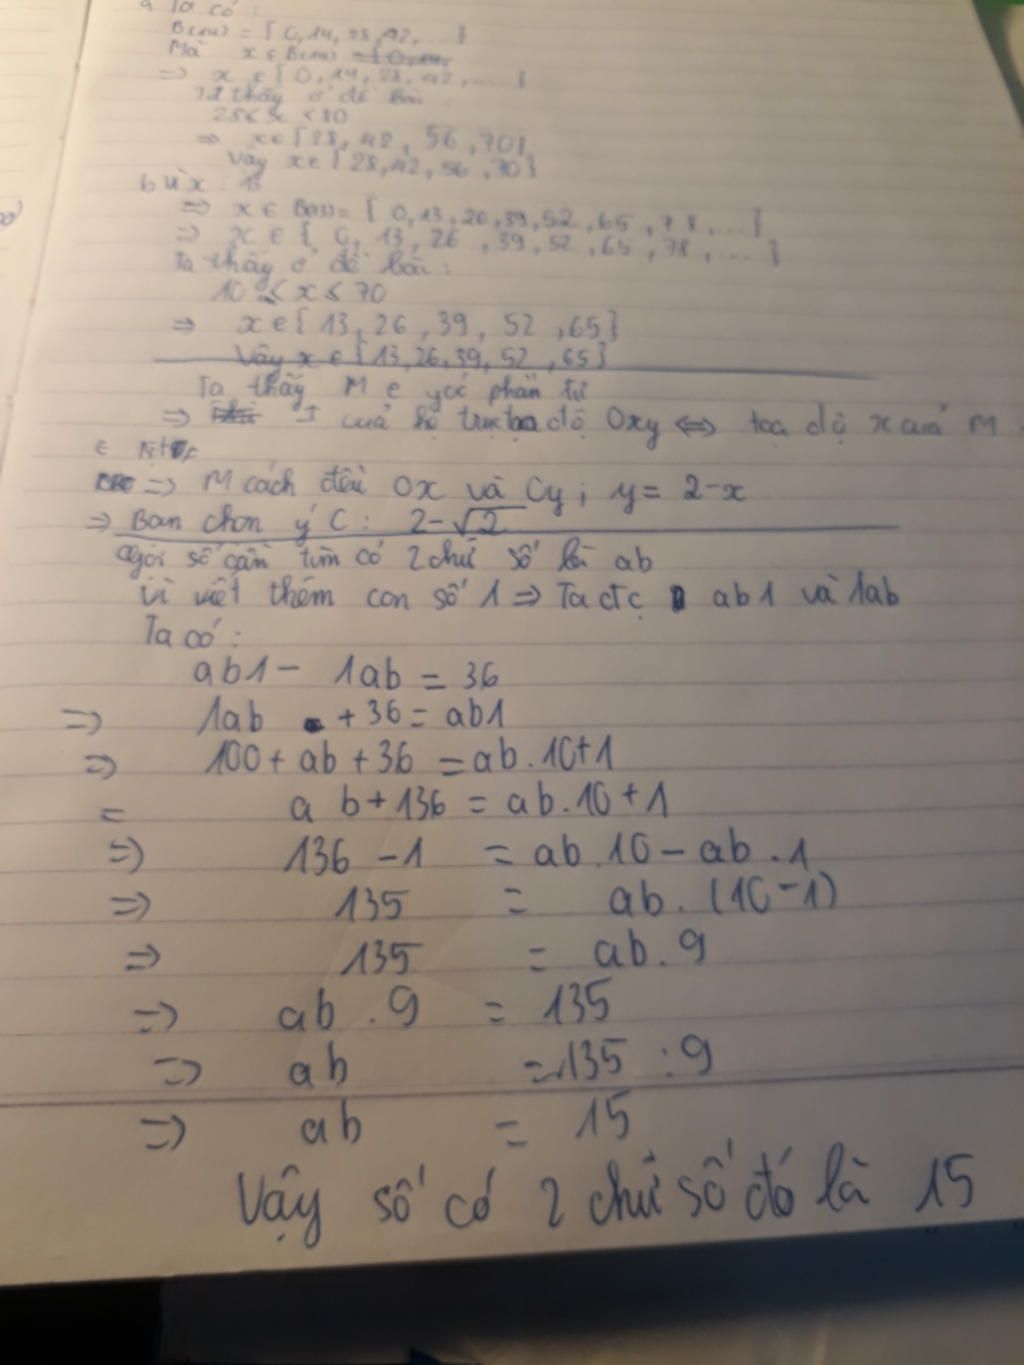 a Ta có:
B(14) = { 0, 14, 28, 42, ... }
Mà x ∈ B(14)
=> x ∈ { 0, 14, 28, 42, .... }
Ta thấy ở đề bài
28 ≤ x < 80
=> x ∈ { 28, 42, 56, 70 }
Vậy x ∈ { 28, 42, 56, 70 }
b Vì x : 13
=> x ∈ B(13) = { 0, 13, 26, 39, 52, 65, 78, ... }
=> x ∈ { 0, 13, 26, 39, 52, 65, 78, ... }
Ta thấy ở đề bài:
10 < x ≤ 70
=> x ∈ { 13, 26, 39, 52, 65 }
Vậy x ∈ { 13, 26, 39, 52, 65 }
Ta thấy M e góc phần tư
=> I của hệ trục toạ độ Oxy <=> toạ độ x của M
=> M cách đều Ox và Oy; y = 2-x
=> Bạn chọn ý C: 2-√2
Gọi số cần tìm có 2 chữ số là ab
Vì viết thêm con số 1 => Ta đc ab1 và 1ab
Ta có:
ab1 - 1ab = 36
=> 1ab + 36 = ab1
=> 100 + ab + 36 = ab . 10 + 1
= ab + 136 = ab . 10 + 1
=> 136 - 1 = ab . 10 - ab . 1
=> 135 = ab . (10 - 1)
=> 135 = ab . 9
=> ab . 9 = 135
=> ab = 135 : 9
=> ab = 15
Vậy số có 2 chữ số đó là 15